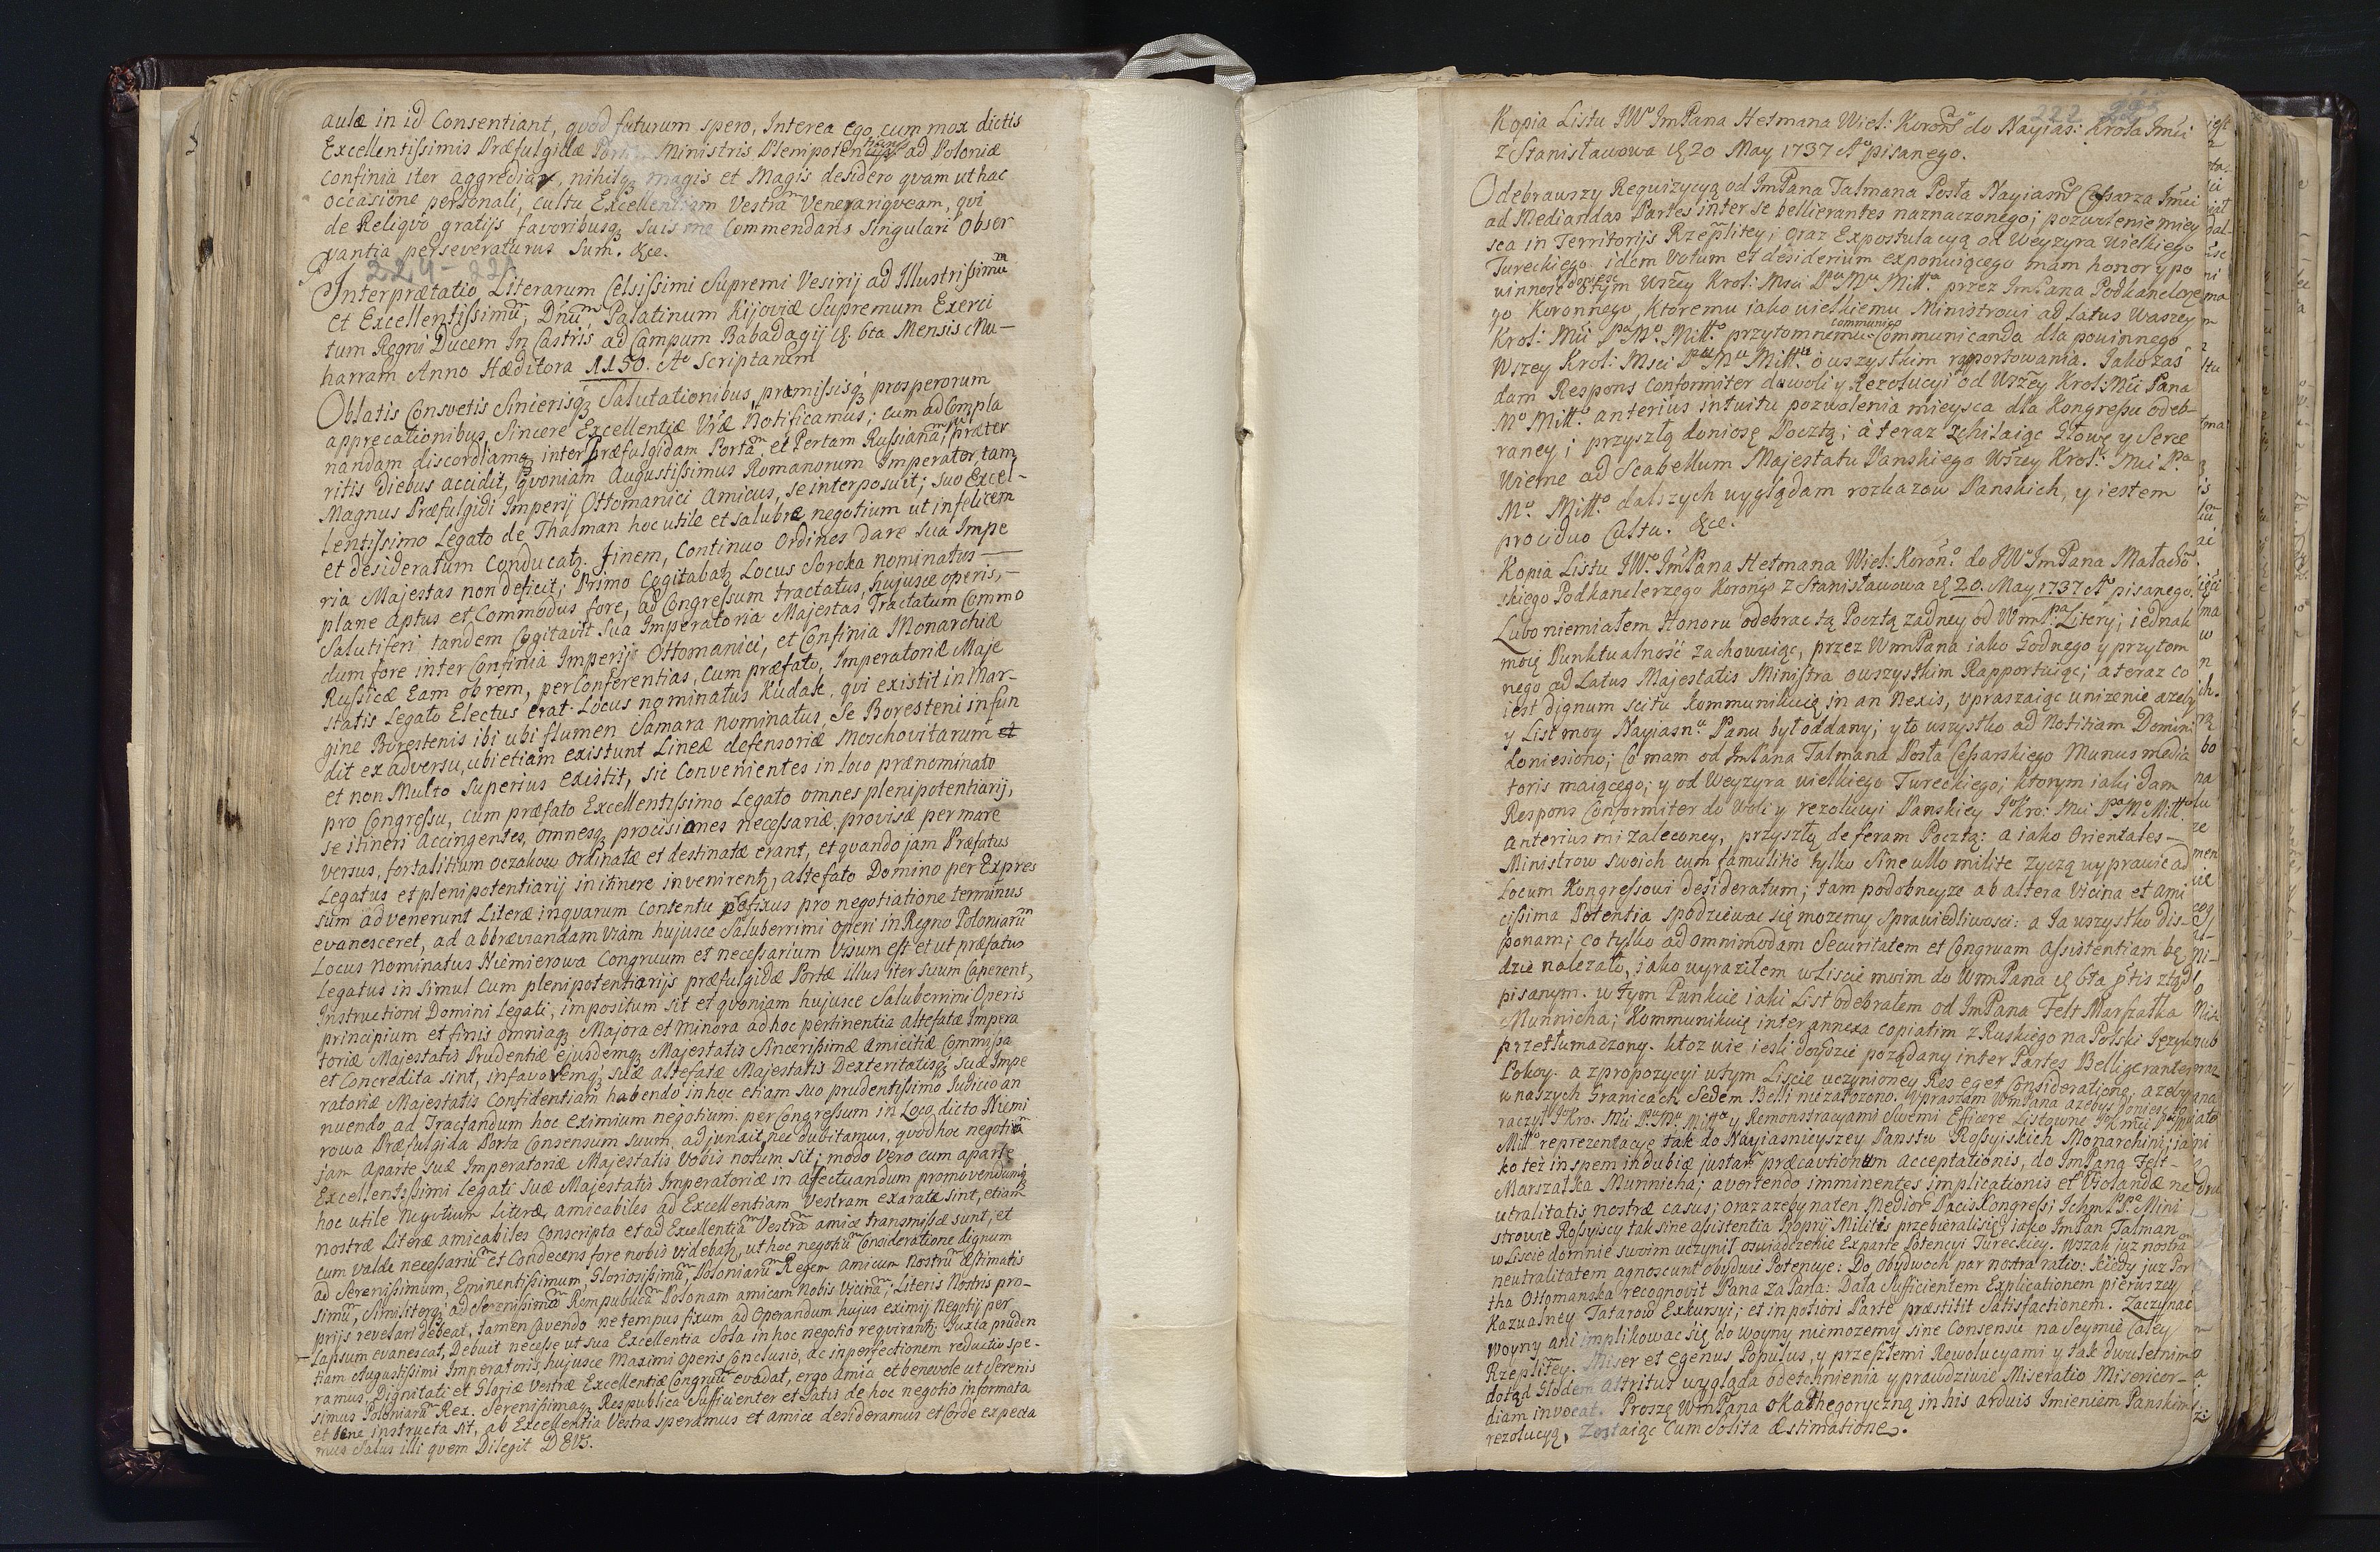 aulæ in id Consentiant, quod futurum spero, Interea Ego cum mox dictis
Excellentissimis Præfulgidæ Portæ Ministris Plenipotentiarijs ad Poloniæ
confinia iter aggrediar, nihilq magis et Magis desidero quam ut hac
occasione personali, cultu Excellentiam Vestrã Venerari queam, qui
de Reliquo gratijs favoribusq suis me Commendans Singulari Obser
vantia perseveraturus Sum. &ce.
224 - 221
Interprætatio Literarum Celsissimi Supremi Vesirij ad Illustrissimũ
et Excellentissimũ, Dñum Palatinum Kijoviæ Supremum Exerci
tum Regni Ducem In Castris ad Campum Babadagij d. 6ta Mensis Mu-
harram Anno Hæditora 1150. Ao Scriptarum
Oblatis Consvetis Sinierisq Salutationibus, præmissisq prosperorum
apprecationibus, Sincere Excellentiæ Vræ Notificamus; cum ad Compla
nandam discordiamq inter Præfulgidam Portã et Portam Russianã, præter
ritis Diebus accidit, quoniam Augustissimus Romanorum Imperator, tam
Magnus Præfulgidi Imperij Ottomanici Amicus, se interposuit; suo Excel-
lentissimo Legato de Thalman hoc utile et salubre negotium ut in felicem
et desideratum Conducatq. finem, Continuo Ordines dare sua Impe
ria Majestas non deficit; Primo Cogitabatq Locus Soroka nominatus
plane Aptus et Commodus fore, ad Congressum tractatus, hujusce operis,
Salutiferi tandem Cogitavit Sua Imperatoria Majestas Tractatum Commo
dum fore inter Confinia Imperij Ottomanici, et Confinia Monarchiæ
Russicæ Eam ob rem, per Conferentias, Cum præfato, Imperatoriæ Maje
statis Legato Electus erat Locus nominatus Kudak, qui existit in Mar-
gine Borestenis ibi ubi flumen Samara nominatus, Se Boresteni infun
dit ex adversu, ubi etiam existunt Lineæ defensoriæ Moschovitarum et
et non Multo Superius existit, sic Convenientes in loco prænominato
pro Congressu, cum præfato Excellentissimo Legato omnes plenipotentiarij,
se itineri Accingentes, omnesq procisiones necessariæ, provisæ per mare
versus, fortalitium Oczakow ordinatæ et destinatæ erant, et quando jam Præfatus
Legatus et plenipotentiarij in itinere invenirentq, altefato Domino per Expres
sum advenerunt Literæ in quarum Contentu pcefixus pro negotiatione terminus
evanesceret, ad abbræviandam viam hujusce Saluberrimi operi in Regno Poloniarũ
Locus Nominatus Niemierowa Congruum et necessarium Visum est et ut præfatus
Legatus in simul Cum plenipotentiarijs præfulgidæ Portæ illus iter suum Caperent,
Instructioni Domini Legati, impositum sit et quoniam hujusce Saluberrimi Operis
principium et finis omniaq Majora et minora ad hoc pertinentia altefatæ Impera
toriæ Majestatis Prudentiæ ejusdemq Majestatis Sincerissimæ Amicitiæ Commissa
et Concredita sint, in favoremq suæ altefatæ Majestatis Dexteritatisq suæ Impe
ratoriæ Majestatis Confidentiam habendo in hoc etiam suo prudentissimo Judicio an
nuendo ad Tractandum hoc eximium negotium per Congressum in Loco dicto Niemi
rowa Præfulgida Porta Consensum suum, adjunxit nec dubitamus, quod hoc negotiũ
jam Aparte suæ Imperatoriæ Majestatis Vobis notum sit; modo vero cum aparte
Excellentissimi Legati Suæ Majestatis Imperatoriæ in afectuandum promovendumq
hoc utile Negotium Literæ amicabiles ad Excellentiam Vestram exaratæ sint, etiam
nostræ Literæ amicabiles Conscripta et ad Excellentiã Vestrã amicæ transmissæ sunt, et
Cum valde necessariũ et Condecens fore nobis videbatq, ut hoc negotiũ Consideratione dignum
ad Serenissimum, Eminentissimum, Gloriosissimũ, Poloniarũ Regem Amicum Nostrũ Æstimatis
simũ, Similiterq ad Serenissimã Rempublicã Polonam amicam Nobis Vicinã; Literis Nostris pro-
prijs revelari debeat, tamen Cavendo ne tempus fixum ad Operandum hujus eximij Negotij per
lapsum evanescat, Debuit necesse ut sua Excellentia Sola in hoc negotio requirantq Juxta pruden
tiam Augustissimi Imperatoris, hujusce Maximi Operis Conclusio, ac in perfectionem reductio spe-
ramus, Dignitati et Gloriæ Vestræ Excellentiæ Congruũ evadat, ergo Amica et benevole ut Serenis
simus Poloniarũ Rex. Serenissimaq Respublica Sufficienter et Satis de hoc negotio informata
et bene instructa sit, ab Excellentia Vestra speramus et amice desideramus et Corde expecta
mus Salus illi quem Dilegit DEUS.
222 223
Kopia Listu JWo ImPana Hetmana Wiel: Koroño do Nayias: Krola Imći
z Stanisławowa d 20 May 1737 Ao pisanego.
Odebrawszy Requizycyą od ImPana Talmana Posła Nayiasño Cesarza Imći
ad Mediandas Partes inter se bellierantes naznaczonego; pozwolenie miey
sca in Territorijs Rzeplitey; oraz Expostulacyą od Weyzyra wielkiego
Tureckiego idem Votum et desiderium exponuiącego mam honor y po
winność donieść o tym Wszey Krol: Msci Pa Mu Mitta przez ImPana Podkanclerze
go Koronnego, Ktoremu iako wielkiemu Ministrowi ad Latus Waszey
Krol: Mci Pa Mo Mitto przytomnemu Communico Communicanda dla powinnego
Wszey Krol: Msci Pau Mu Mittu o wszystkim raportowania. Jako zas
dam Respons Conformiter do woli y Rezolucyi od Wszey Krol: Mci Pana
Mo Mitto anterius intuitu pozwolenia mieysca dla Kongressu odeb-
raney; przyszłą doniosę Pocztą; a teraz schilaiąc Głowę y Serce
Wierne ad Scabellum Majestatu Panskiego Wszey Krol: Mci Pa
Mo Mitto dalszych wyglądam rozkazow Panskich, y iestem
prociduo Cultu. &ce.
Kopia Listu JWo ImPana Hetmana Wiel: Koroño do JWo ImPana Małacho
skiego Podkanclerzego Korongo z Stanisławowa d 20. May 1737 Ao pisanego.
Lubo niemiałem Honoru odebrac tą Pocztą zadney od WmPa Litery; iednak
moię Punktualność zachowuiąc, przez WmPana iako Godnego y przytom
nego ad Latus Majestatis Ministra o wszystkim Rapportuięc; a teraz co
iest dignum scitu Kommunikuię in an Nexis, upraszaiąc unizenie azeby
y List moy Nayiasno Panu był oddany; y to wszystko ad Notitiam Domini
doniesiono; Co mam od ImPana Talmana Posła Cesarskiego Munus media
toris maiącego; y od Weyzyra wielkiego Tureckiego; ktorym iaki dam
Respons Conformiter do Woli y rezolucyi Panskiey JoKro: Mci Pa Mo Mitto
anterius mi zaleconey, przyszłą deferam Pocztą: a iako Orientales
Ministrow swoich cum famulitio tylko Sine ullo milite zyczą wyprawic ad
Locum Kongressowi desideratum; tam podobneyze ab altera Vicina et ami
cissima Potentia spodziewac się mozemy sprawiedliwosci: a Ja wszystko dis-
ponam; co tylko ad omnimodam Securitatem et Congruam Assistentiam bę
dzie nalezało, iako wyraziłem w Liscie moim do WmPana d 6ta ptis ztąd
pisanym. w tym Punkcie iaki List odebrałem od ImPana Felt Marszałka
Munnicha; Kommunikuię inter annexa copiatim z Ruskiego na Polski Język
przetłumaczony. ktoz wie iesli doydzie poządany inter Partes Belligerantes
Pokoy. a z propozycyi w tym Liscie uczynioney Res eget Consideratione, azeby
w naszych Granicach Sedem Belli niezałozono. Upraszam WmPana azebys donieść
raczył JKro. Mci Pu Mu Mitta y Remonstracyami Swemi Eficere Listowne JoKMci PaMo
Mitto reprezentacye tak do Nayiasnieyszey Panstw Rossyiskich Monarchini; ia
ko tez in spem indubiæ justar præcautionum acceptationis, do ImPana Felt-
Marszałka Munnicha; avertendo imminentes implicationis et Violandæ ne
utralitatis nostræ casus; oraz azeby na ten Medior Pacis Kongress; Ichm PPe Mini
strowie Rossyiscy tak sine Assistentia Proprij Militis przebierali się; iako ImPan Talman
w Liscie do mnie swoim uczynił oswiadczenie Ex parte Potencyi Tureckiey. Wszak juz nostrã
neutralitatem agnoscunt obydwie Potencye: Do obydwoch par nostra ratio: kiedy juz Por
tha Ottomanska recognovit Pana za Pana: Data Sufficientem Explicationem pierwszey
Kazualney Tatarow Exkursyi; et in potiori Parte præstitit Satisfactionem. Zaczynac
woyny ani implikowac się do woyny niemozemy sine Consensu na Seymie Całey
Rzeplitey. Miser et egenus Populus, y przeszłemi Rewolucyami y tak dwuletnim
dotąd Głodem attritus wygląda odetchnienia y prawdziwie Miseratio Misericor-
diam invocat. Proszę WmPana o Kathegoryczną in his arduis Imieniem Panskim
rezolucyą, Zostaiąc Cum Solita Æstimatione.